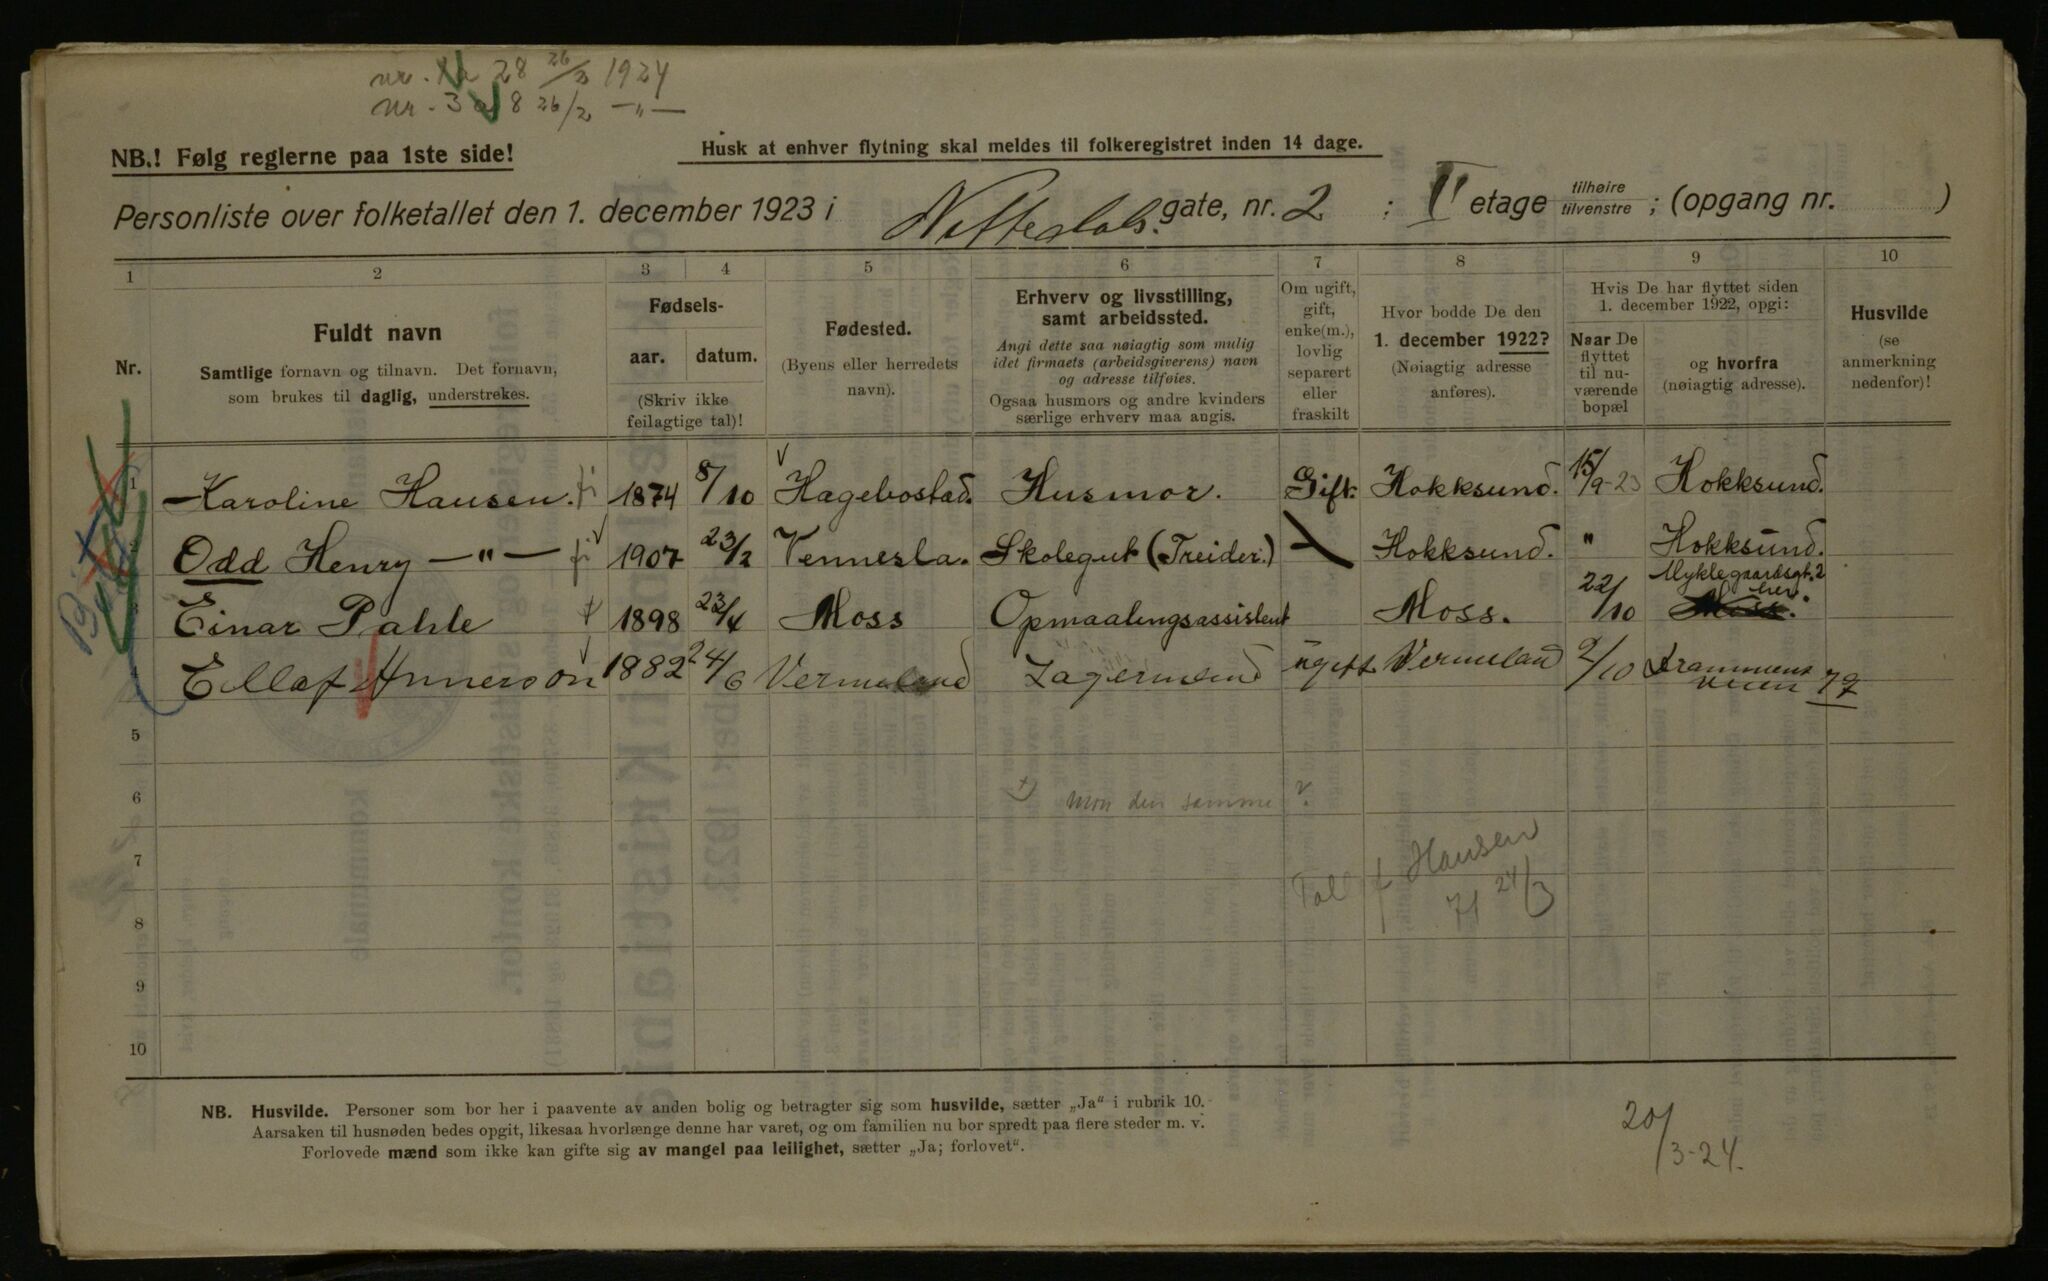 nr. 28 26/2 1924
nr. 3 8 26/2 —"—
NB.! Følg reglerne paa 1ste side!
Husk at enhver flytning skal meldes til folkeregistret inden 14 dage.
Personliste over folketallet den 1. december 1923 i Nittedals. gate, nr. 2 : II etage tilhøire tilvenstre ; (opgang nr. )
1 2 3 4 5 6 7 8 9 10
Nr.
Fuldt navn
Samtlige fornavn og tilnavn. Det fornavn,
som brukes til daglig, understrekes.
Fødsels-
aar. datum.
(Skriv ikke
feilagtige tal)!
Fødested.
(Byens eller herredets
navn).
Erhverv og livsstilling,
samt arbeidssted.
Angi dette saa nøiagtig som mulig
idet firmaets (arbeidsgiverens) navn
og adresse tilføies.
Ogsaa husmors og andre kvinders
særlige erhverv maa angis.
Om ugift,
gift,
enke(m.),
lovlig
separert
eller
fraskilt
Hvor bodde De den
1. december 1922?
(Nøiagtig adresse
anføres).
Hvis De har flyttet siden
1. december 1922, opgi:
Naar De
flyttet
til nu-
værende
bopæl
og hvorfra
(nøiagtig adresse).
Husvilde
(se
anmerkning
nedenfor)!
1 Karoline Hansen. fi 1874 8/10 Hagebostad. Husmor. Gift. Hokksund. 15/9-23 Hokksund.
Odd Henry —"— fi 1907 23/2 Vennesla. Skolegut (Treider.) Hokksund. " Hokksund.
Einar Pahle 1898 23/4 Moss Opmaalingsassistent Moss. 22/10 Myklegaardsgt. 2
her. Moss.
Ellaf Annerson 1882 24/6 Vermeland Lagermend ugift Vermeland 2/10 Drammens
veien 77
5
6 +) Mon den samme ?
7
Tol f Hansen
71 24/3
8
9
10
NB. Husvilde. Personer som bor her i paavente av anden bolig og betragter sig som husvilde, sætter „Ja“ i rubrik 10.
Aarsaken til husnøden bedes opgit, likesaa hvorlænge denne har varet, og om familien nu bor spredt paa flere steder m. v.
Forlovede mænd som ikke kan gifte sig av mangel paa leilighet, sætter „Ja; forlovet“.
20/3-24.